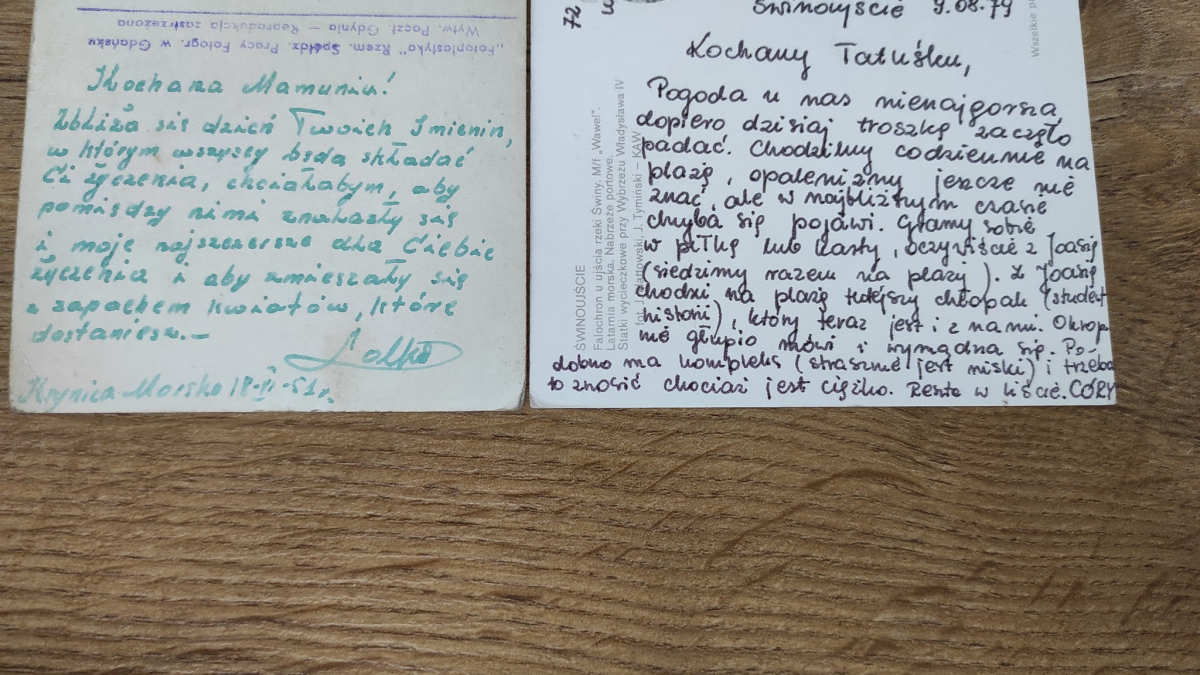 „Fotoplastyka" Rzem. Spółdz. Pracy Fotogr. w Gdańsku
Wytw. Poczt. Gdynia — Reprodukcja zastrzeżona
Kochana Mamuniu!
Zbliża się dzień Twoich Imienin,
w którym wszyscy będą składać
Ci życzenia, chciałabym, aby
pomiędzy nimi znalazły się
i moje najszczersze dla Ciebie
życzenia i aby zmieszały się
z zapachem kwiatów, które
dostaniesz.—
Lalka
Krynica-Morska 18-VI-51r.
72
Świnoujście 9.08.79
Kochany Tatuśku,
Pogoda u nas nienajgorsza
dopiero dzisiaj troszkę zaczęło
padać. Chodzimy codziennie na
plażę, opalenizny jeszcze nie
znać, ale w najbliższym czasie
chyba się pojawi. Gramy sobie
w piłkę lub karty, oczywiście z Joasią
(siedzimy razem na plaży). Z Joasią
chodzi na plażę tutejszy chłopak (student
historii), który teraz jest i z nami. Okrop
nie głupio mówi i wymądrza się. Po-
dobno ma kompleks (strasznie jest niski) i trzeba
to znosić chociaż jest ciężko. Reszta w liście. CÓRY
ŚWINOUJŚCIE
Falochron u ujścia rzeki Świny. M/f „Wawel".
Latarnia morska. Nabrzeże portowe.
Statki wycieczkowe przy Wybrzeżu Władysława IV
fot. J. Tymiński — KAW
Wszelkie